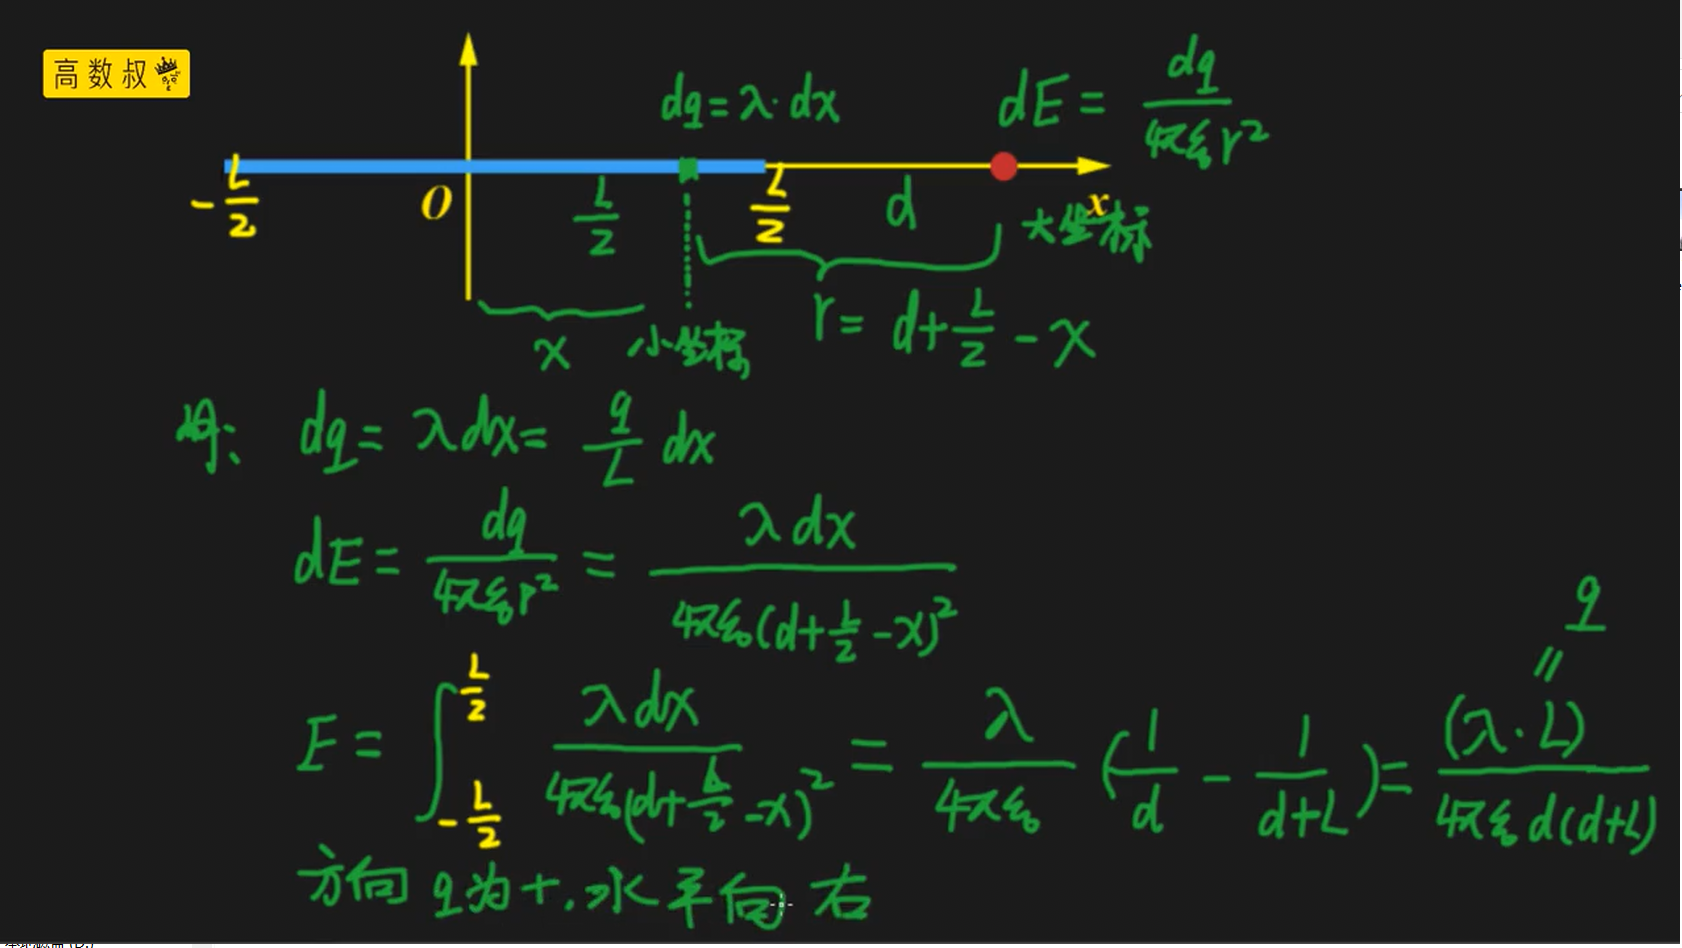 高数叔
dq=λ·dx
dE = dq/4πε₀r²
-L/2
O
L/2
L/2
d
x
大坐标
x
小坐标
r = d+L/2-x
dq = λdx = q/L dx
dE = dq/4πε₀r² = λdx/4πε₀(d+L/2-x)²
q
=
E = ∫ L/2 -L/2 λdx/4πε₀(d+L/2-x)² = λ/4πε₀ (1/d - 1/d+L) = (λ·L)/4πε₀d(d+L)
方向 q为+.水平向右